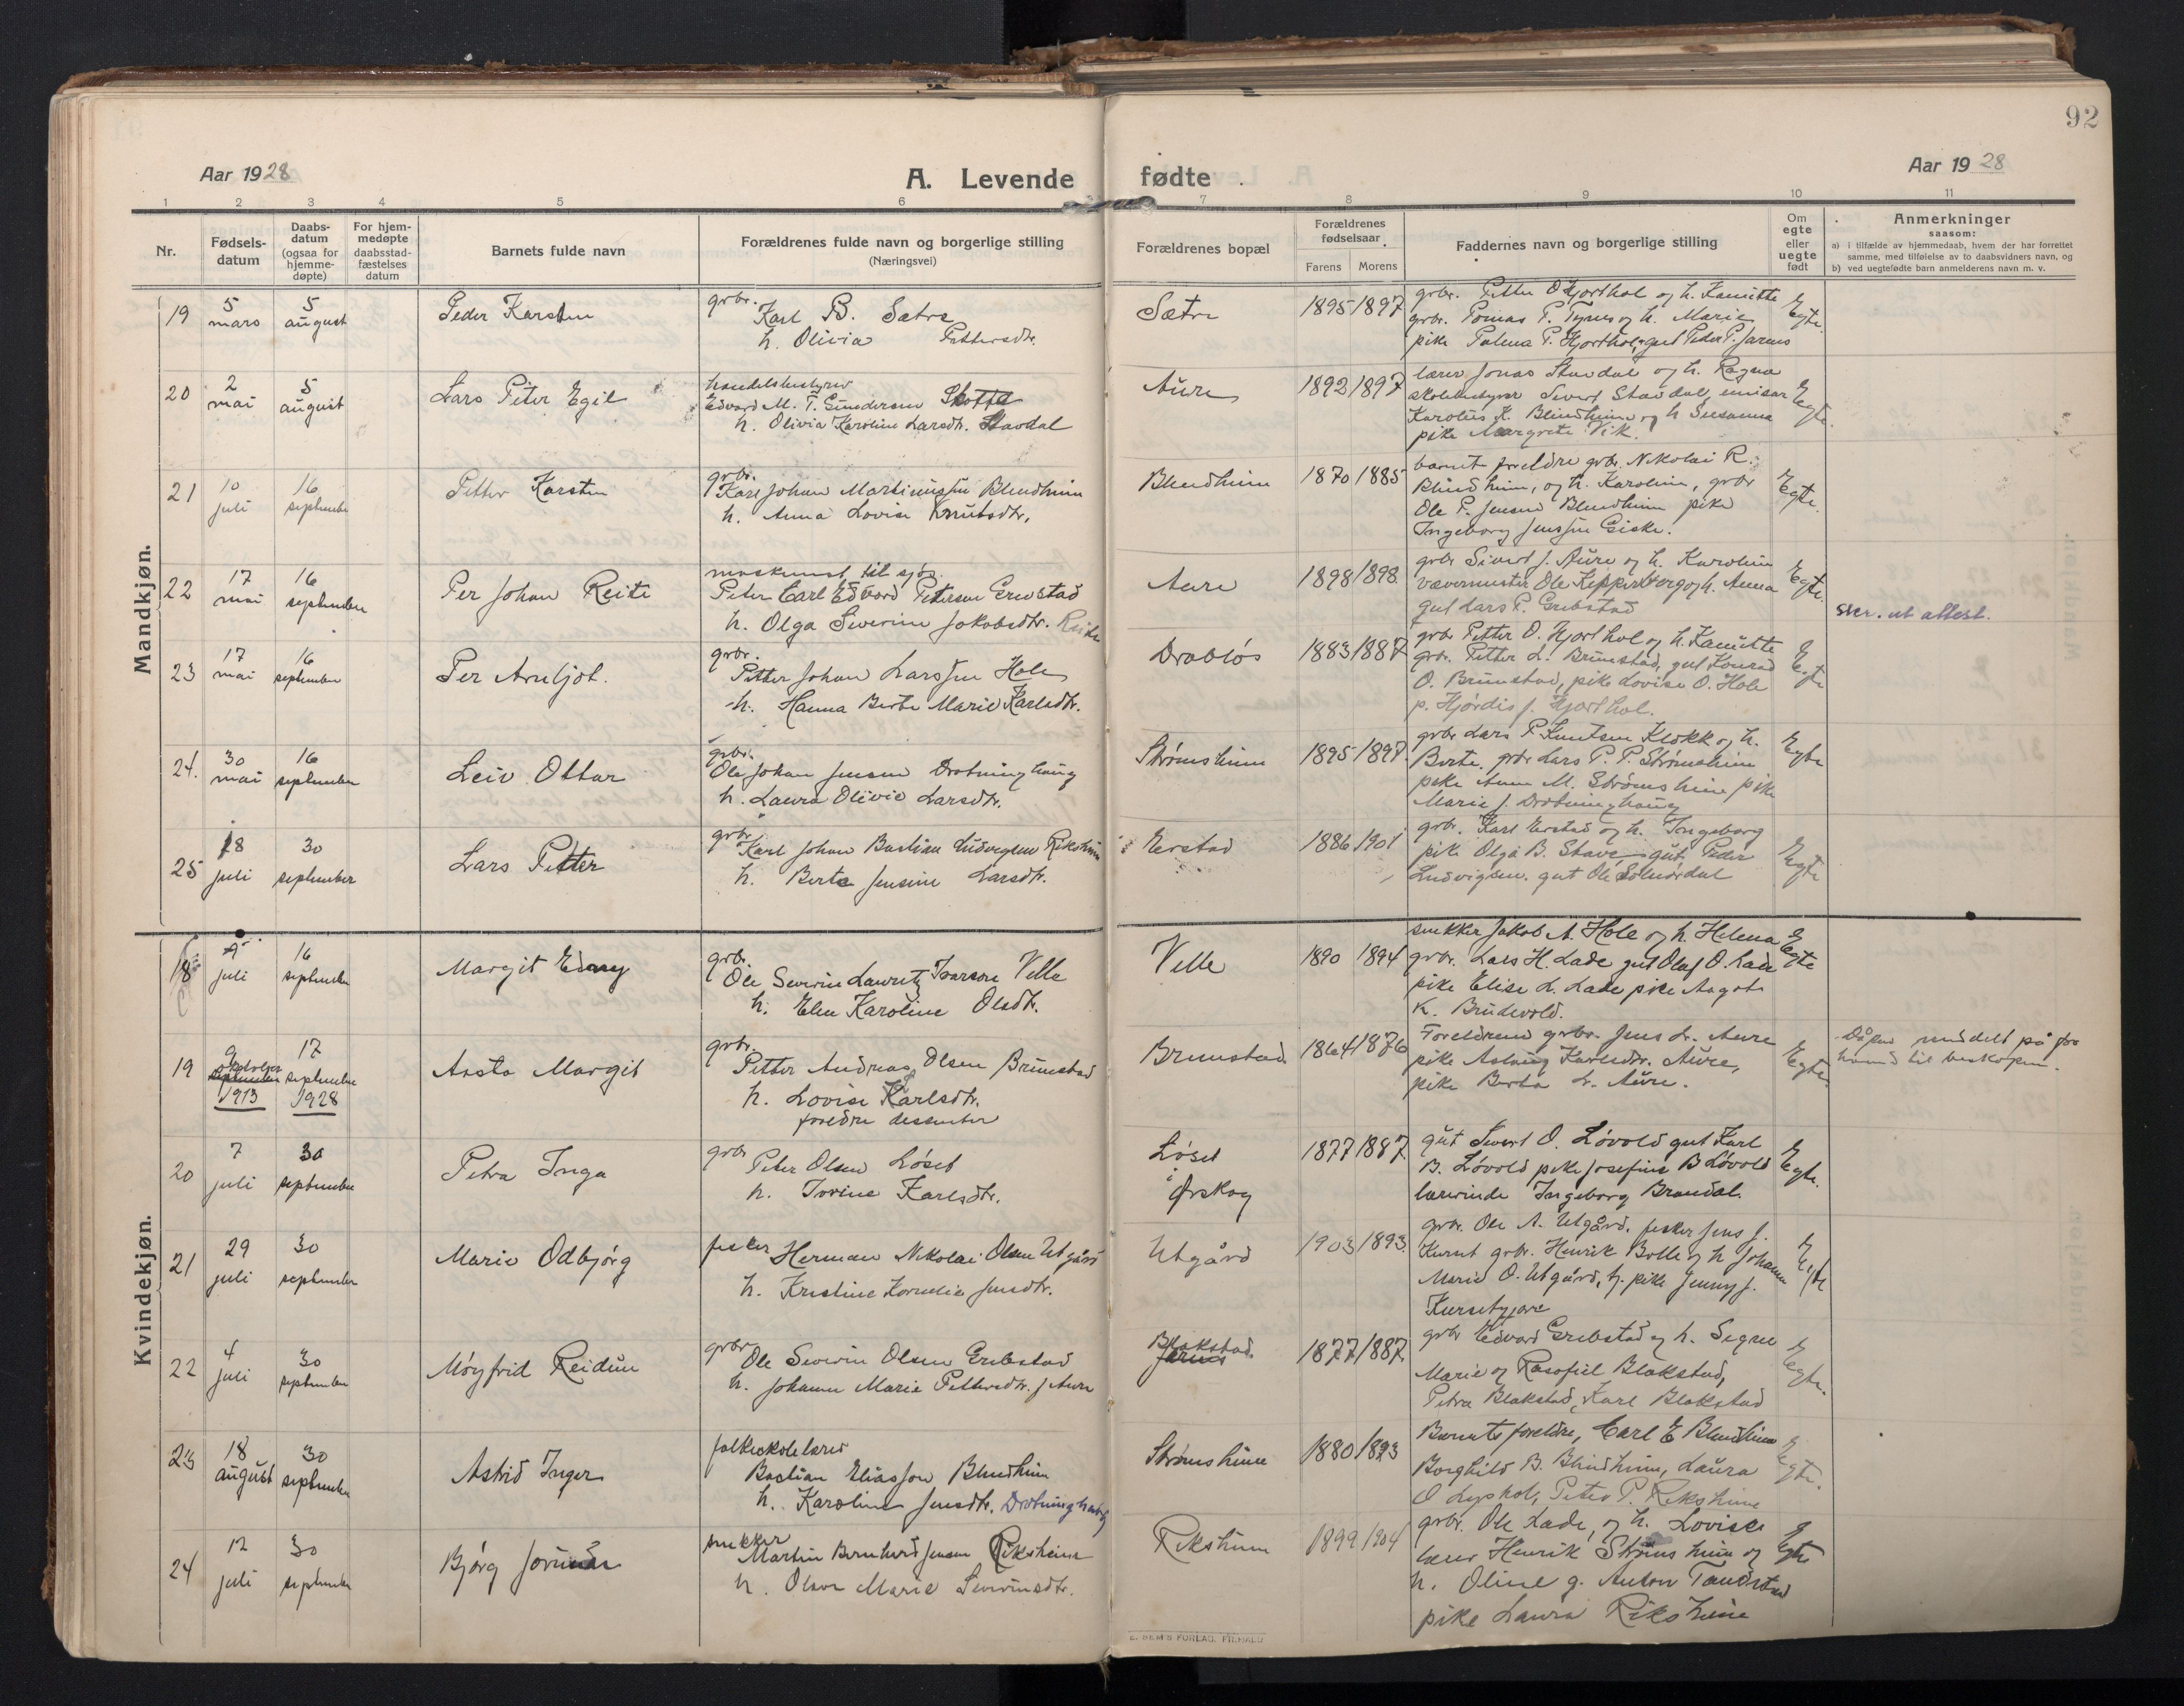 92
Aar 1928
A. Levende fødte
Aar 1928
1 2 3 4 5 6 7 8 9 10 11
Nr.
Fødsels-
datum
Daabs-
datum
(ogsaa for
hjemme-
døpte)
For hjem-
medøpte
daabsstad-
fæstelses
datum
Barnets fulde navn
Forældrenes fulde navn og borgerlige stilling
(Næringsvei)
Forældrenes bopæl
Forældrenes
fødselsaar
Farens Morens
Faddernes navn og borgerlige stilling
Om
egte
eller
uegte
født
Anmerkninger
saasom:
a) i tilfælde av hjemmedaab, hvem der har forrettet
samme, med tilføielse av to daabsvidners navn, og
b) ved uegtefødte barn anmelderens navn m. v.
Mandkjøn.
19
5
mars
5
august
Peder Karsten
grbr.
Karl B. Sætre
h. Olivia Pettersdtr.
Sætre
1895 1897
grbr. Petter O Hjorthol og h. Kamitte
grbr. Tomas P. og h. Marie
pike P. Hjorthol, gut Peder P.
Egte.
20
2
mai
5
august
Lars Peter Egil
handelsbestyrer
Edvard M. T. Gundersen
h. Olivia Karoline Larsdtr. Stavdal
Aure
1892 1897
lærer Jonas Stavdal og h. Ragna
skolebestyrer Sivert Stavdal, emisær
Karolus K. Blindheim og h Susanna
pike Margrete Vik.
Egte.
21
10
juli
16
september
Petter Karsten
grbr.
Karl Johan Martinussen Blindheim
h. Anna Lovise Knutsdtr.
Blindheim
1870 1885
barnets foreldre grbr. Nikolai R.
Blindheim, og h. Karoline, grbr
Ole P. Jensen Blindheim pike
Ingeborg Jensine Giske.
Egte.
22
17
mai
16
september
Per Johan Reite
maskinist til sjøs.
Peter Carl Edvard Peterson Grebstad
h. Olga Severine Jakobsdtr. Reite
Aure
1898 1898
grbr Sivert J. Aure og h. Karoline
vævermester Ole Kipperberg og h. Anna
gut Lars P. Grebstad
Egte.
skr. ut attest.
23
17
mai
16
september
Per Arnljot.
grbr.
Petter Johan Larssen Hole
h. Hanna Berte Marie Karlsdtr.
Drabløs
1883 1887
grbr Petter O. Hjorthol og h. Kamitte
grbr. Petter L. Brunstad, gut Konrad
O. Brunstad, pike Lovise O. Hole
p. Hjørdis J. Hjorthol.
Egte
24.
30
mai
16
september
Leiv Ottar
grbr.
Ole Johan Jensen Drotninghaug
h. Laura Olivie Larsdtr.
Strømsheim
1895 1897.
grbr Lars P. Knutsen Klokk og h.
Berte. grbr Lars P. P. Strømsheim
pike Anne M. Strømsheim pike
Marie J. Drotninghaug
Egte
25
18
juli
30
september
Lars Petter
grbr.
Karl Johan Bastian Ludvigsen Riksheim
h. Berte Jensine Larsdtr.
Erstad
1886 1901
grbr. Karl Erstad og h. Ingeborg
pike Olga B. Stave gut Peder
Ludvigsen. gut Ole Solnørdal
Egte
Kvindekjøn.
18
5
juli
16
september
Margit Edny
grbr.
Ole Severin Lauritz Ivarson Velle
h. Elen Karoline Olsdtr.
Velle
1890 1894
snekker Jakob A. Hole og h. Helena
grbr. Lars H. Lade gut Olaf O. Lade
pike Elise L. Lade pike Aagot
K. Brudevold.
Egte
19
9
september
oktober
1913
17
september
1928
Aasta Margit
grbr.
Petter Andreas Olsen Brunstad
h. Lovise Karlsdtr.
foreldre dissenter
Brunstad
1864 1876
Foreldrene grbr. Jens L. Aure
pike Aslaug Karlsdtr. Aure,
pike Berta L. Aure.
Egte
Dåpen meddelt på for
hånd til biskopen.
20
7
juli
30
september
Petra Inga
grbr
Peter Olsen Løset
h. Jorine Karlsdtr.
Løset
i
Ørskog
1877 1887
gut Sivert O. Løvold gut Karl
B. Løvold pike Josefine B Løvold
lærerinde Ingeborg Brandal.
Egte.
21
29
juli
30
september
Marie Odbjørg
fisker Herman Nikolai Olsen Utgård
h. Kristine Kornelie Jensdtr.
Utgård
1903 1893.
grbr. Ole A. Utgård, fisker Jens J.
grbr. Henrik Bolle og h Johanne
Marie O. Utgård, pike Jenny J.
Egte
22
4
juli
30
september
Møyfrid Reidun
grbr
Ole Severin Olsen Grebstad
h. Johanne Marie Pettersdtr. f Aure
Blakstad
Jarnes
1877 1887
grbr Edvard Grebstad og h. Signe
Marie og Rasofiel Blakstad,
Petra Blakstad, Karl Blakstad
Egte.
23
18
august
30
september
Astrid Inger
folkeskolelærer
Bastian Eliassen Blindheim
h. Karoline Jensdtr. Drotninghaug
Strømsheim
1880 1893
Barnets foreldre, Carl E Blindheim
Borghild B. Blindheim, Laura
O Lyshol, Peter P. Riksheim
Egte.
24
12
juli
30
september
Bjørg Jorunn
snekker
Martin Bernhard Jensen Riksheim
h. Olave Marie Severinsdtr.
Riksheim
1899 1904
grbr. Ole Lade, og h. Lovise
lærer Henrik Strømsheim og
h. Oline g. Anton Tandstad
pike Laura Riksheim
Egte
E. SEM'S FORLAG, FR.HALD